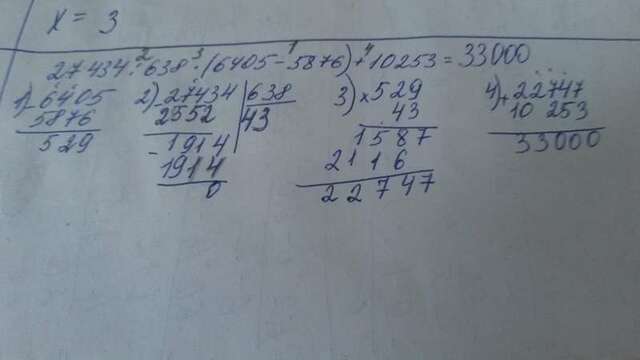 x = 3
2 3 1 4
27434:638·(6405-5876)+10253=33000
1) -6405 2) -27434 |638 3) ×529 4) +22747
5876 2552 43 43 10 253
529 -1914 1587 33000
1914 2116
0 22747